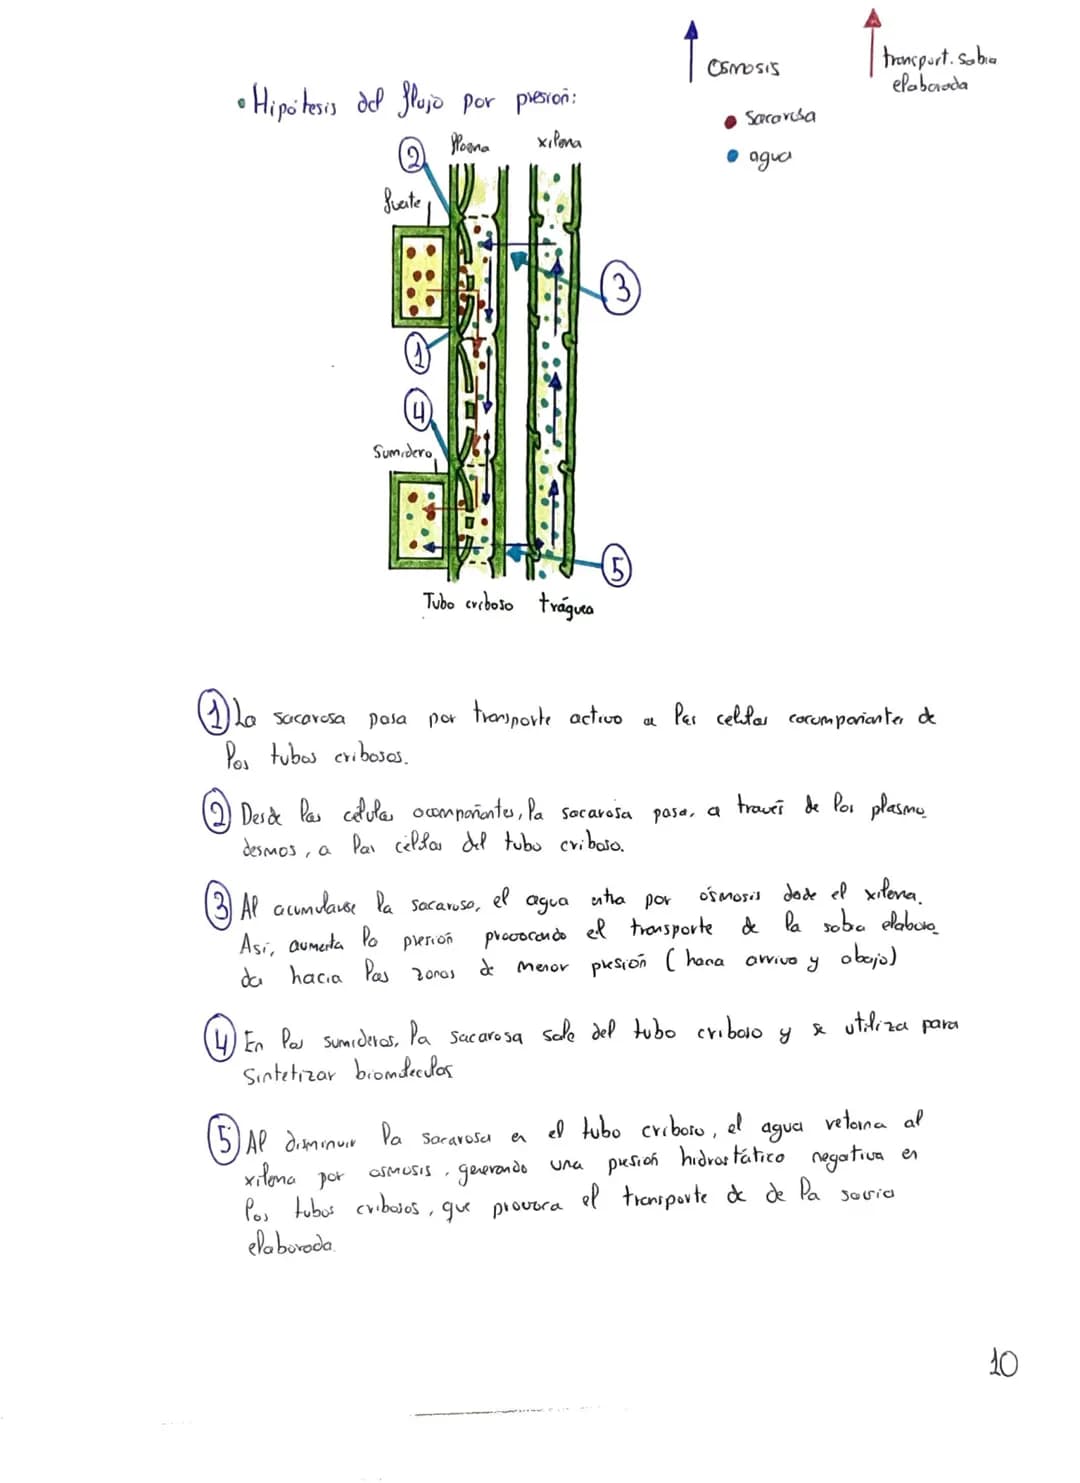 osmosis
transport. sabia
elaborada
• Hipótesis del flujo por presión:
sacarosa
agua
floema
xilema
2
fuente
3
1
4
Sumidero
5
Tubo criboso
tráquea
1 La sacarosa pasa por transporte activo a las células acompañantes de
los tubos cribosos.
2 Desde las células acompañantes, la sacarosa pasa, a través de los plasmo
desmos, a las células del tubo criboso.
3 Al acumularse la sacarosa, el agua entra por ósmosis desde el xilema.
Así, aumenta la presión provocando el transporte de la saba elabora
da hacia las zonas de menor presión (hacia arriva y abajo)
4 En los sumideros, la sacarosa sale del tubo criboso y se utiliza para
Sintetizar biomoléculas
5 Al disminuir la sacarosa en el tubo criboso, el agua retorna al
xilema por osmosis, generando una presión hidrostático negativa en
los tubos cribosos, que provoca el transporte de de la savia
elaborada.
10